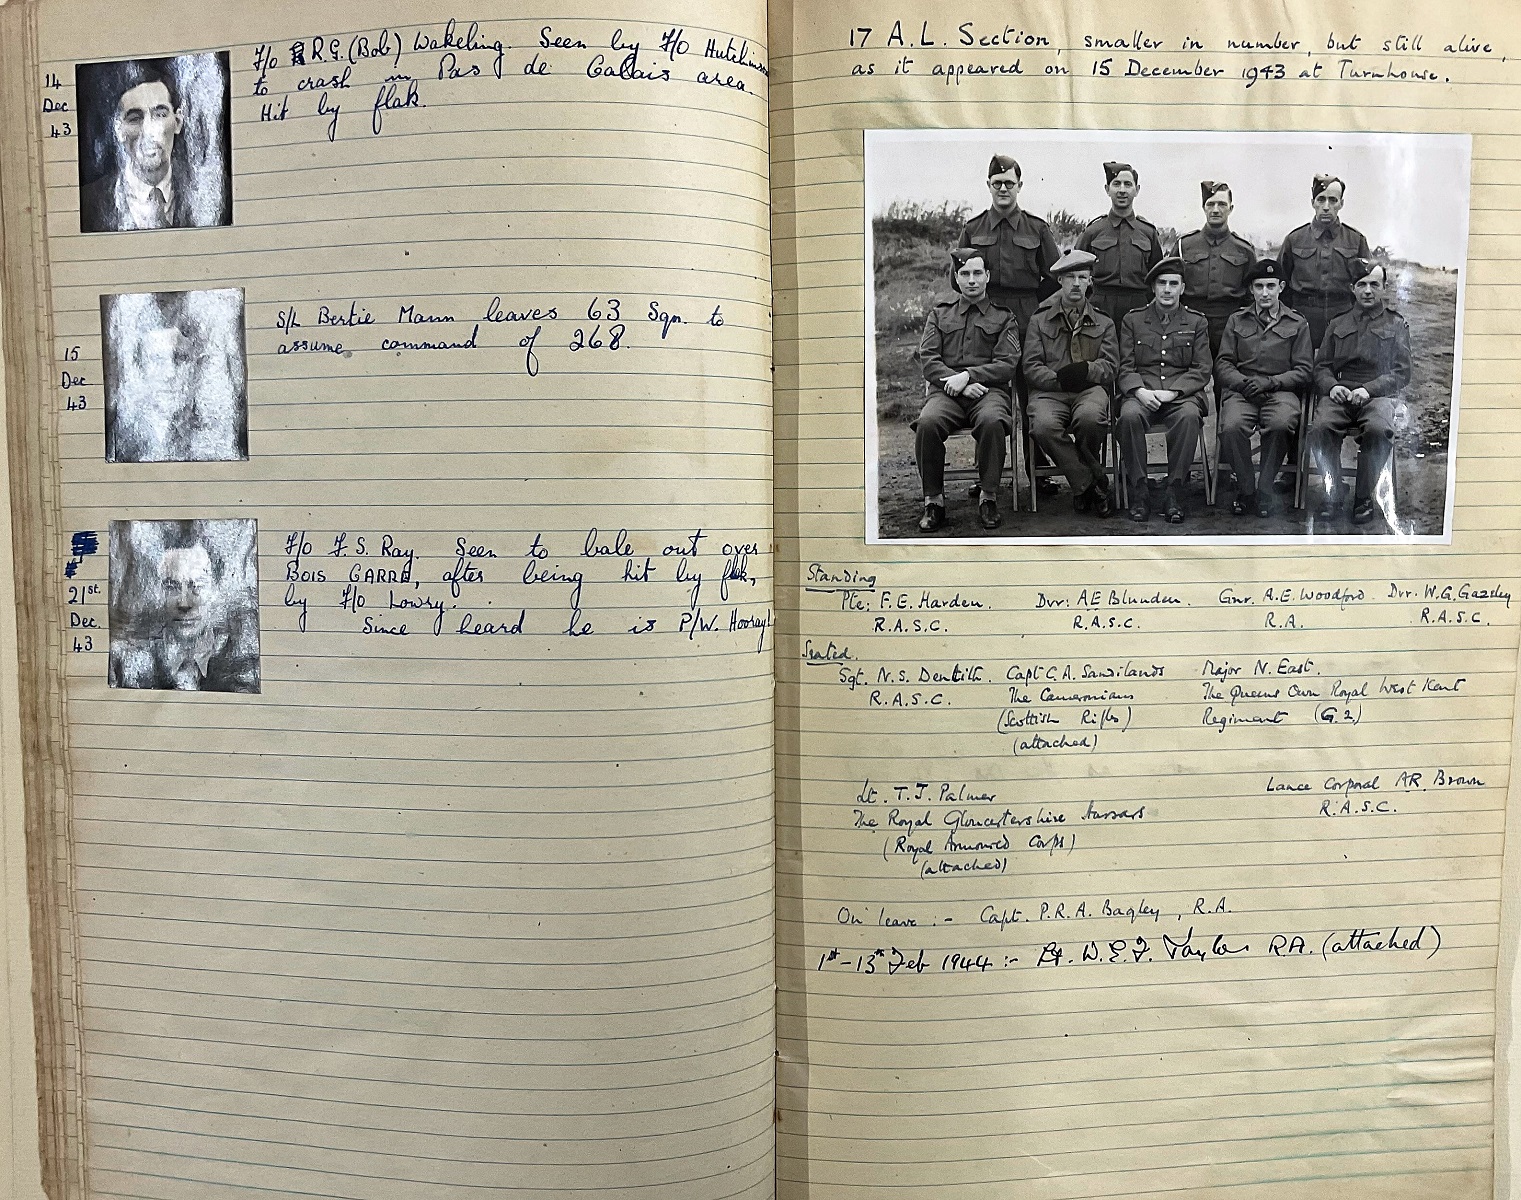 14
Dec
43
F/O R.G. (Bob) Wakeling. Seen by F/O Hutchinson
to crash in Pas de Calais area.
Hit by flak.
15
Dec
43
S/L Bertie Mann leaves 63 Sqn. to
assume command of 268.
21st.
Dec.
43
F/O F. S. Ray. Seen to bale out over
BOIS CARRÉ, after being hit by flak,
by F/O Lowry.
Since heard he is P/W. Hooray!
17 A.L. Section, smaller in number, but still alive,
as it appeared on 15 December 1943 at Turnhouse.
Standing
Pte: F.E. Harden. Dvr: A E Blunden. Gnr. A.E. Woodford. Dvr. W.G. Gazeley
R.A.S.C. R.A.S.C. R.A. R.A.S.C.
Seated.
Sgt. N.S. Denbith. Capt C.A. Sandilands Major N. East.
R.A.S.C. The Cameronians The Queens Own Royal West Kent
(Scottish Rifles) Regiment (G.2)
(attached)
Lt. T.J. Palmer Lance Corporal A.R. Brown
The Royal Gloucestershire Hussars R.A.S.C.
(Royal Armoured Corps)
(attached)
On leave :- Capt. P.R.A. Bagley, R.A.
1st - 13th Feb 1944 :- Lt. W.E.F. Taylor R.A. (attached)